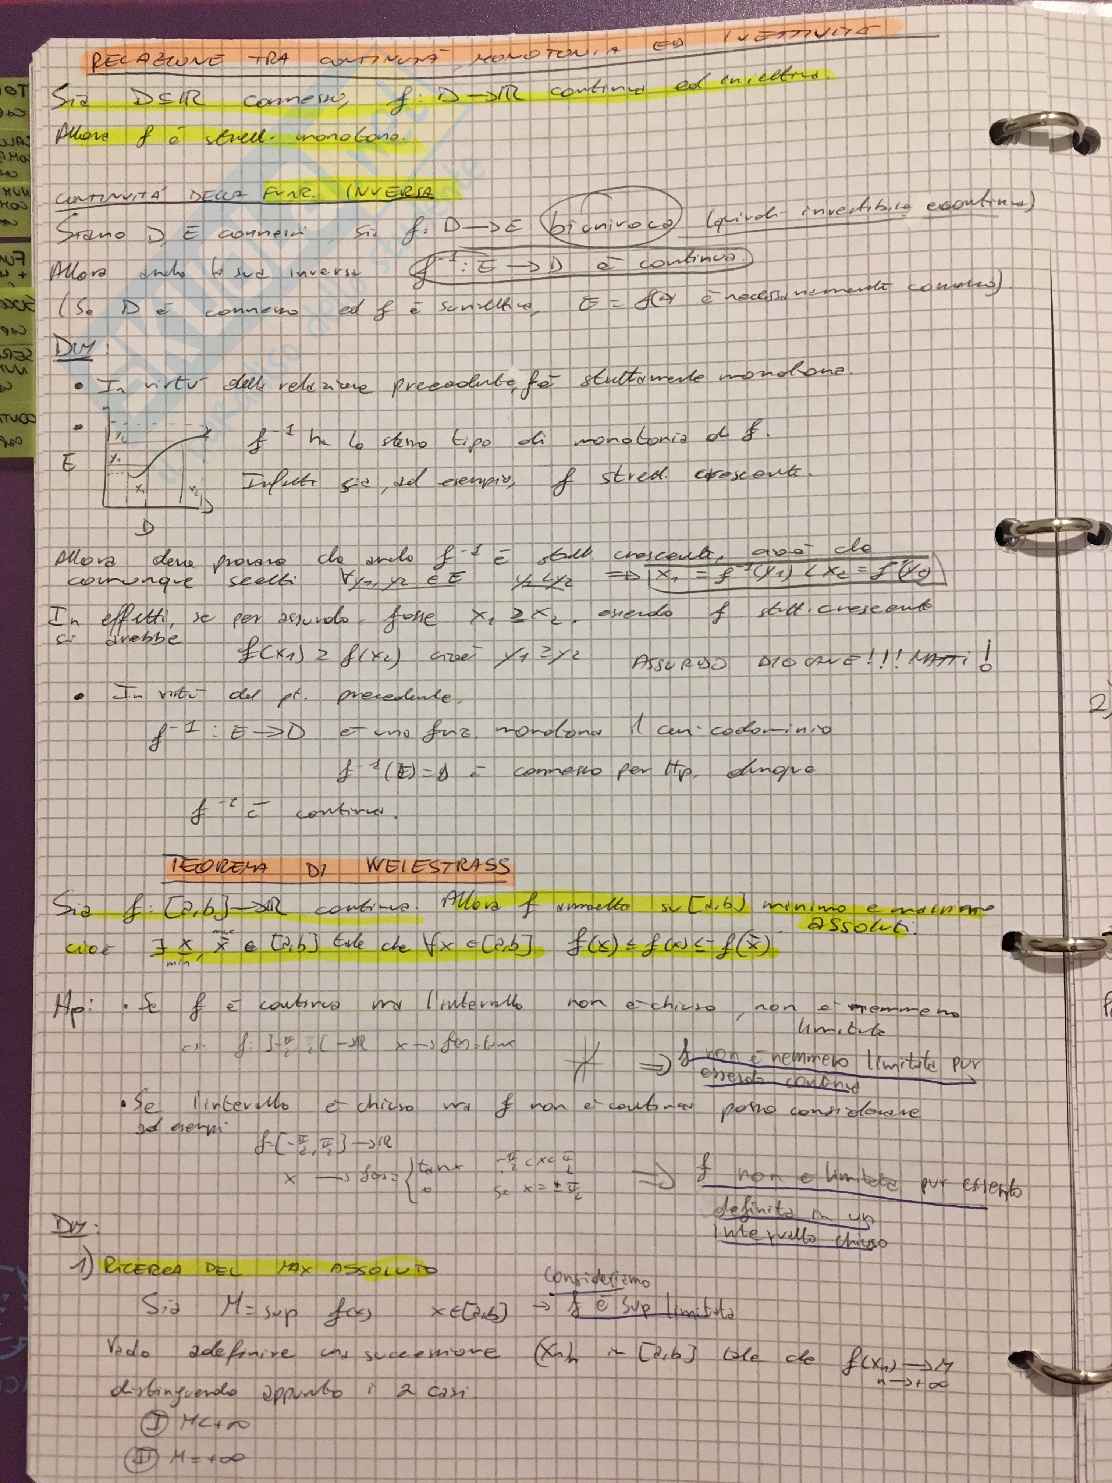 RELAZIONE TRA CONTINUITÀ MONOTONIA ED INETTIVITÀ
Sia D⊆ℝ connesso, f: D→ℝ continua ed iniettiva.
Allora f è strett. monotona.
CONTINUITÀ DELLA FUNZ. INVERSA
Siano D, E connessi Sia f: D→E biunivoca (quindi invertibile e continua)
Allora anche la sua inversa f⁻¹: E→D è continua.
(Se D è connesso ed f è suriettiva, E = f(D) è necessariamente connesso)
DIM:
• In virtù della relazione precedente, f è strettamente monotona.
• f⁻¹ ha lo stesso tipo di monotonia di f.
E
Infatti sia, ad esempio, f strett. crescente.
y₁ x₁ x₂
D
Allora devo provare che anche f⁻¹ è strett crescente, cioè che
comunque scelti ∀y₁, y₂ ∈ E y₁<y₂ ⇒ x₁ = f⁻¹(y₁) < x₂ = f⁻¹(y₂)
In effetti, se per assurdo fosse x₁ ≥ x₂, essendo f strett. crescente
si avrebbe
f(x₁) ≥ f(x₂) cioè y₁ ≥ y₂ ASSURDO DIO CANE!!! MATTI!
• In virtù del pt. precedente,
f⁻¹: E→D è una funz. monotona il cui codominio
f⁻¹(E)=D è connesso per Hp. dunque
f⁻¹ è continua.
TEOREMA DI WEIESTRASS
Sia f: [a,b]→ℝ continua. Allora f ammette su [a,b] minimo e massimo
assoluti.
cioè ∃ x̲, x̄ ∈ [a,b] tale che ∀x ∈ [a,b] f(x̲) ≤ f(x) ≤ f(x̄)
min max
Hp: • Se f è continua ma l'intervallo non è chiuso, non è nemmeno
limitata
x→f(x)=tanx ⇒ f non è nemmeno limitata pur
essendo continua
• Se l'intervallo è chiuso ma f non è continua posso considerare
ad esempi
f:[-π/2, π/2]→ℝ
x → f(x)= { tanx -π/2<x<π/2 ⇒ f non è limitata pur essendo
0 se x = ± π/2
definita in un
intervallo chiuso
DIM:
1) RICERCA DEL MAX ASSOLUTO
Consideriamo
Sia M = sup f(x) x∈[a,b] → f è sup limitata
Vado a definire una successione (xₙ)ₙ in [a,b] tale che f(xₙ) → M
n→+∞
distinguendo appunto i 2 casi
I M<+∞
II M=+∞
2)